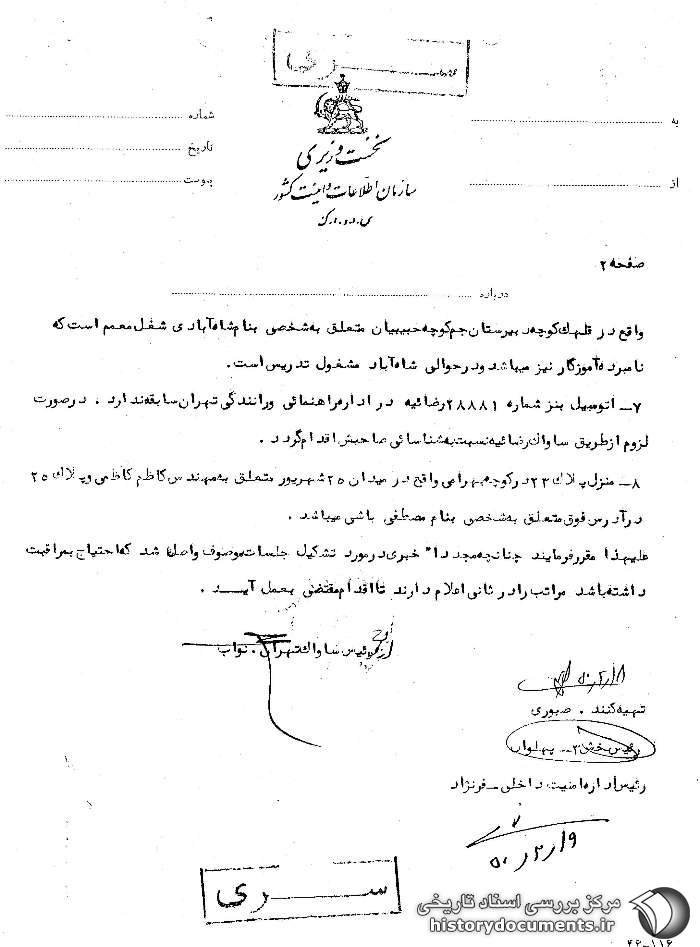 سری
به
شماره
تاریخ
از
پیوست
نخست وزیری
سازمان اطلاعات و امنیت کشور
س.ا.و.ا.ک
صفحه ۲
درباره
واقع در قلهك كوچه دبیرستان جم كوچه حبیبیان متعلق به شخصی بنام شاه آبادی شغل معمم است که
نامبرده آموزگار نیز میباشد و در حوالی شاه آباد مشغول تدریس است.
۷ـ اتومبیل بنز شماره ۲۸۸۸۱ رضائیه در اداره راهنمائی و رانندگی تهران سابقه ندارد ، در صورت
لزوم از طریق ساواک رضائیه نسبت به شناسائی صاحبش اقدام گردد .
۸ـ منزل پلاك ۲۳ در کوچه بهرامی واقع در میدان ۲۵ شهریور متعلق به مهندس کاظم کاظمی و پلاك ۲۵
در آدرس فوق متعلق به شخصی بنام مصطفی باشی میباشد .
علیهذا مقرر فرمایند چنانچه مجددا" خبری در مورد تشکیل جلسات موصوف واصل شد که احتیاج بمراقبت
داشته باشد مراتب را در ثانی اعلام دارند تا اقدام مقتضی بعمل آیــد .
رئیس ساواک تهران . نواب
تهیه کننده . صبوری
رئیس بخش ۳ ـ پهلوان
رئیس اداره امنیت داخلی ـ فرنژاد
۵۰/۲/۹
ســری
مرکز بررسی اسناد تاریخی
historydocuments.ir
۴۶-۱۱۶